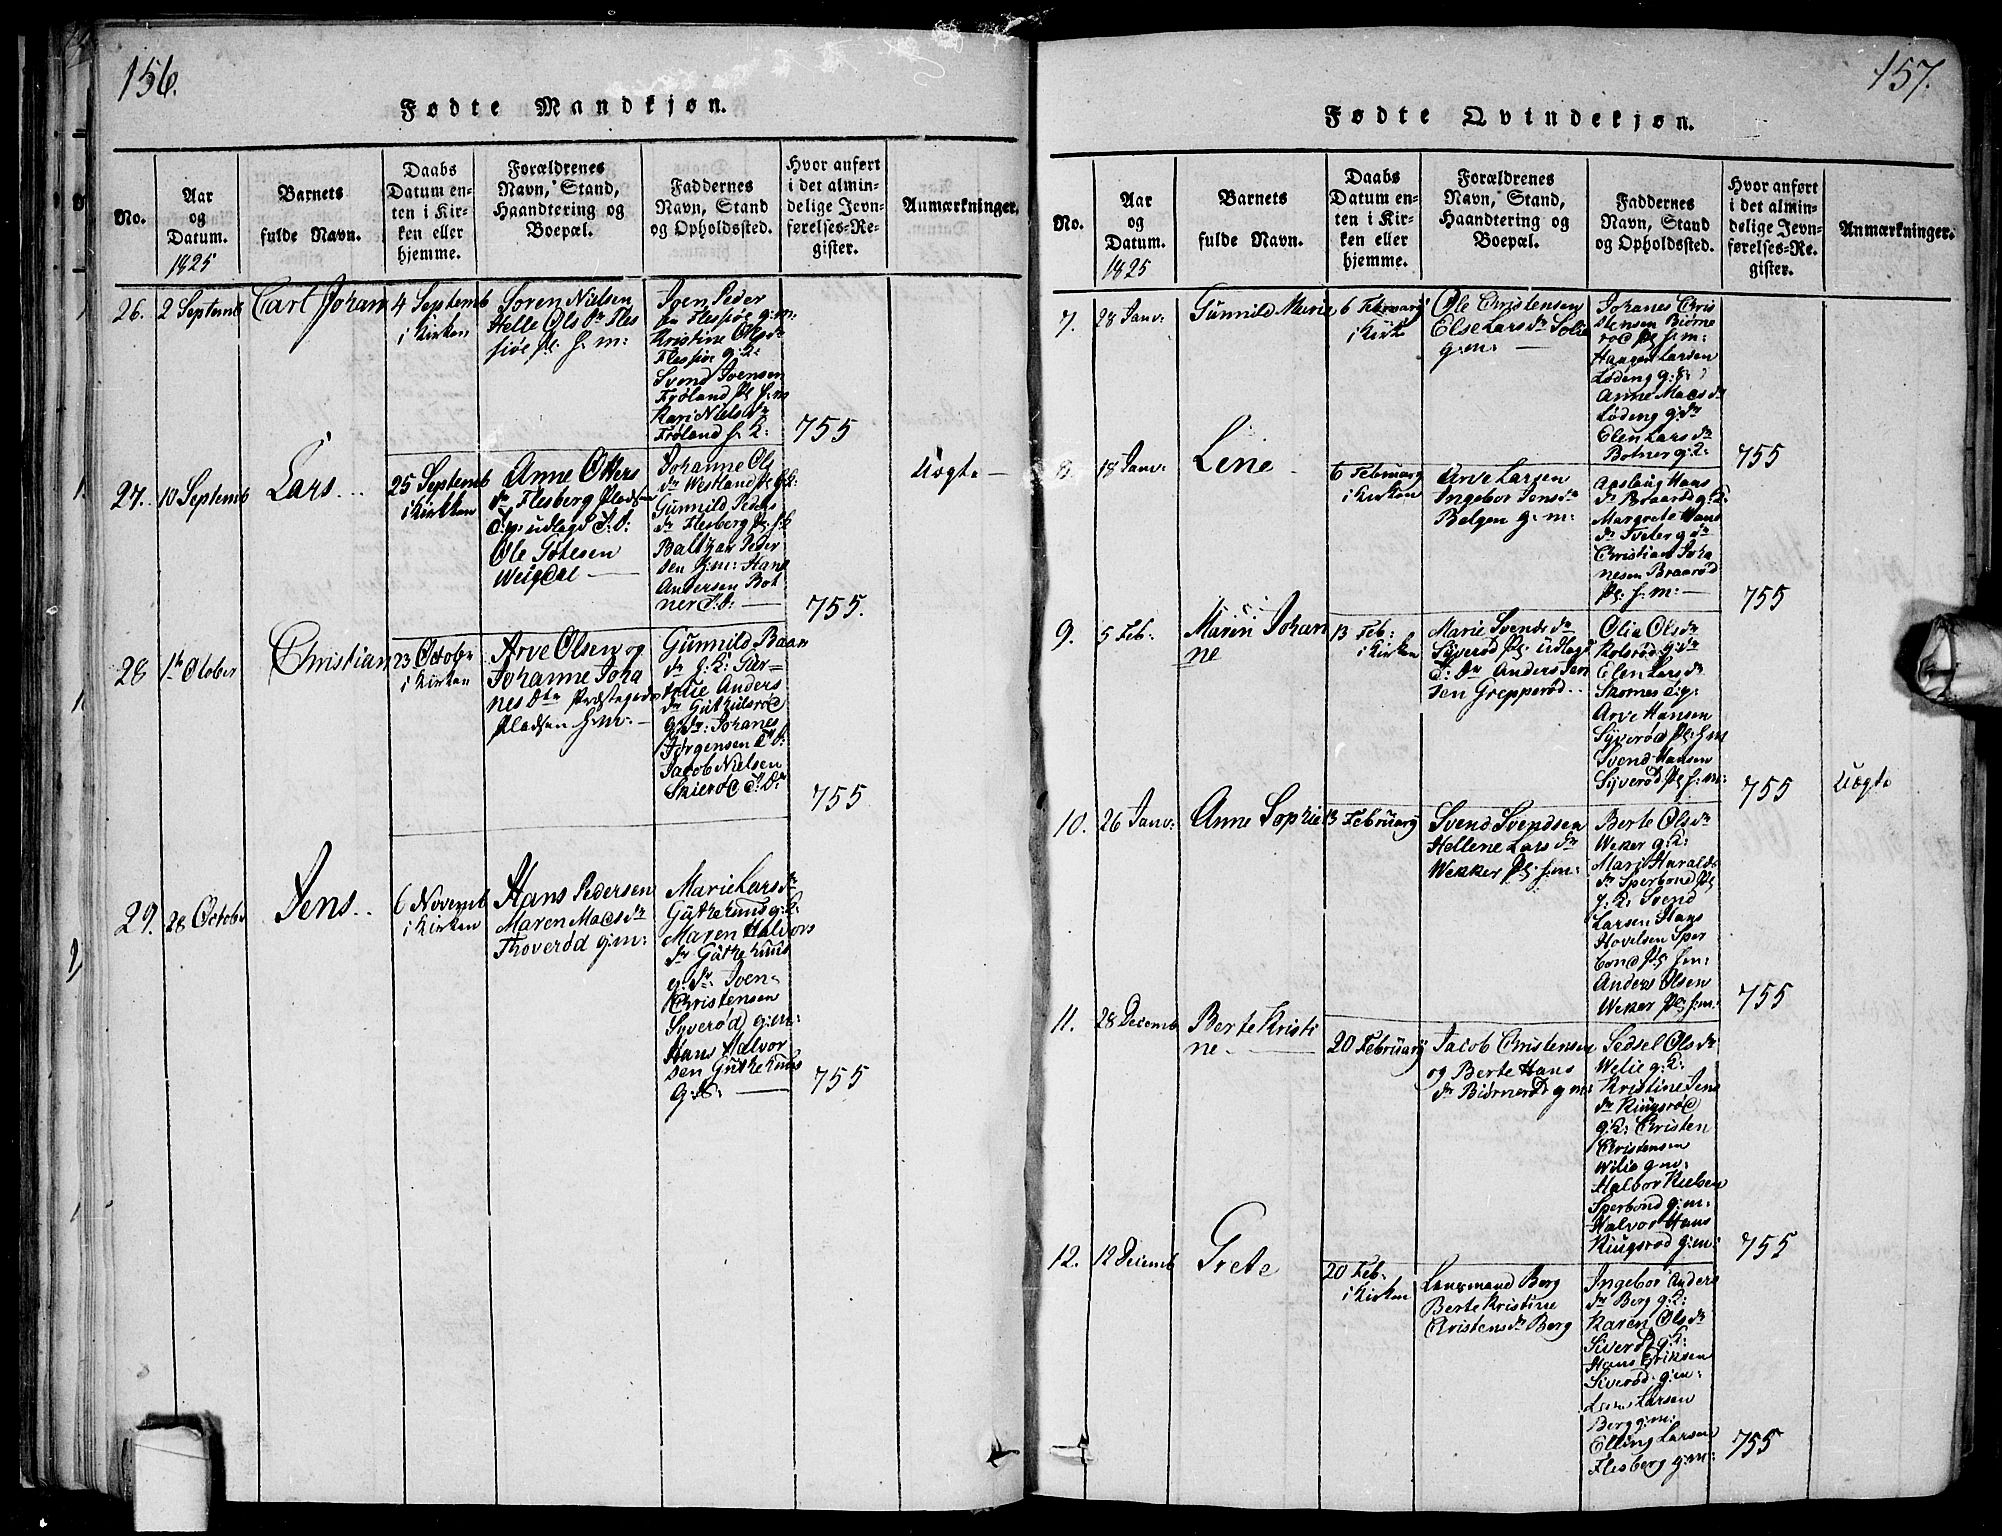 156.
Fødte Mandkjøn.
No.
Aar
og
Datum.
1825
Barnets
fulde Navn.
Daabs
Datum en-
ten i Kir-
ken eller
hjemme.
Forældrenes
Navn, Stand,
Haandtering og
Boepæl.
Faddernes
Navn, Stand
og Opholdssted.
Hvor anført
i det almin-
delige Jevn-
førelses-Re-
gister.
Anmærkninger.
26.
2 Septemb
Carl Johan
4 Septemb
i Kirken
Soren Nielsen
Helle Ols dr Fles
siøe pl: h: m:
Iven Peder
sen Flessiøe g: m:
Kristine Ols dr
Flessiøe g: k:
Svend Ivensen
Frøland pl h: m
Kari Niels dr
Frøland h: k:
755
27.
10 Septemb
Lars
25 Septemb
i Kirkken
Anne Otters
dr Flesberg Pladsen
udlagt
Ole
Johanne Ols
dr Westland
Gunnild Peders
dr Flesberg pl: h: k
Balthzar Peder
sen h: m: Hans
Andersen Bot
ner
755.
Uægte
28
1te October
Christian
23 Octobr
i Kirken
Arve Olsen og
Johanne Joha
nes dtr Præstegards
Pladsen h: m:
Gunnild Baar
dr g: k:
Anders
dr
g: dr: Johanes
Jørgensen
Jacob Nielsen
Skierød
755
29.
28 Octobr
Jens
6 Novemb
i Kirken
Hans Pedersen
Maren Mads dr
Thoverød g: m:
Marie Lars dr
g: k:
Maren Halvors
dr
g: dr: Iven
Christensen
Syverød g: m:
Hans Halvor
sen
g: s:
755
157.
Fødte Qvindekjøn.
No.
Aar
og
Datum.
1825
Barnets
fulde Navn.
Daabs
Datum en-
ten i Kir-
ken eller
hjemme.
Forældrenes
Navn, Stand,
Haandtering og
Boepæl.
Faddernes
Navn, Stand
og Opholdssted.
Hvor anført
i det almin-
delige Jevn-
førelses-Re-
gister.
Anmærkninger.
7.
28 Janv:
Gunnild Marie
6 Februarij
i Kirk
Ole Christensen
Else Lars dr Solie
g: m:
Johanes Chris
tensen Biørne
rød pl h: m:
Haagen Larsen
Lødeng g: s:
Anne Mads dr
Lødeng g: dr
Elen Lars dr
Botner g: k:
755
8.
18 Janv:
Lene
6 Februarij
i Kirken
Arve Larsen
Ingebor Jens dr
Belgen g: m:
Aaslaug Hans
dr Braarød g: k:
Margrete Hans
dr Tveter g: dr
Christian Joha
nesen Braarød
pl: h: m:
755
9.
5 Feb:
Maren Johan
ne
13 Feb:
i Kirken
Marie Svends dr
Syverød pl: udlagt
Anders Jen
sen Grepperød
Olia Ols dr
Rolsrød g: dr
Elen Lars dr
Skornes
Arve Hansen
Syverød pl: h: m
Svend Hansen
Syverød pl h: m:
755
Uægte
10.
26 Janv:
Anne Sophie
13 Februarij
Svend Svendsen
Hellene Lars dr
Wekker pl: h: m:
Berte Ols dr
Weker g: k:
Mari Harald
dr Sperbond pl
g: k: Svend
Larsen Hans
Hovelsen Sper
bond pl h: m:
Anders Olsen
Weker pl h: m:
755
11.
28 Decemb
Berte Kristi
ne
20 Februarij
Jacob Christensen
og Berte Hans
dr Biørnerød g: m:
Sedsel Ols dr
Welie g: k:
Kristine Jens
dr Ringsrød
g: k: Christen
Christensen
Wilie g: m:
Halvor Nielsen
Sperbond g: m:
Halvor Hans
Ringsrød g: m:
755
12.
12 Decemb
Grete
20 Feb:
i Kirken
Lensmand Berg
Berte Kristine
Cristens dr Berg
Ingebor Anders
dr Berg g: k:
Karen Ols dr
Siverød g: k:
Hans Eriksen
Siverød g: m:
Lars Larsen
Berg g: m:
Elling Larsen
Flesberg g: m:
755